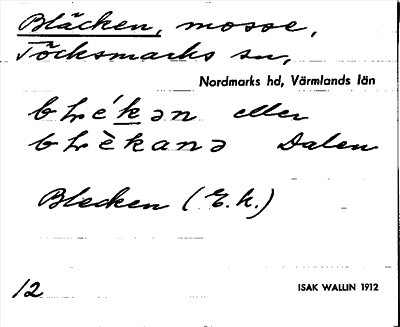 Bläcken, mosse,
Töcksmarks sn,
Nordmarks hd, Värmlands län
bḷé́kən eller
bḷèkanə Dalen
Blecken (E.k.)
12 ISAK WALLIN 1912